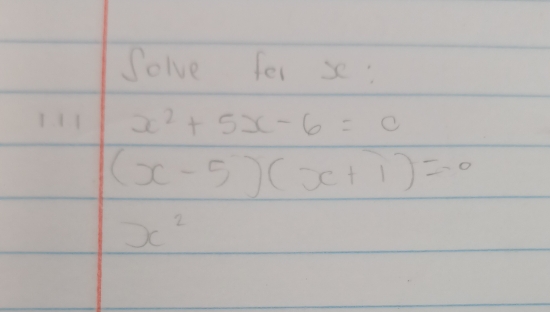 Solve for x:
111 x² + 5x - 6 = 0
(x - 5)(x + 1) = 0
x²